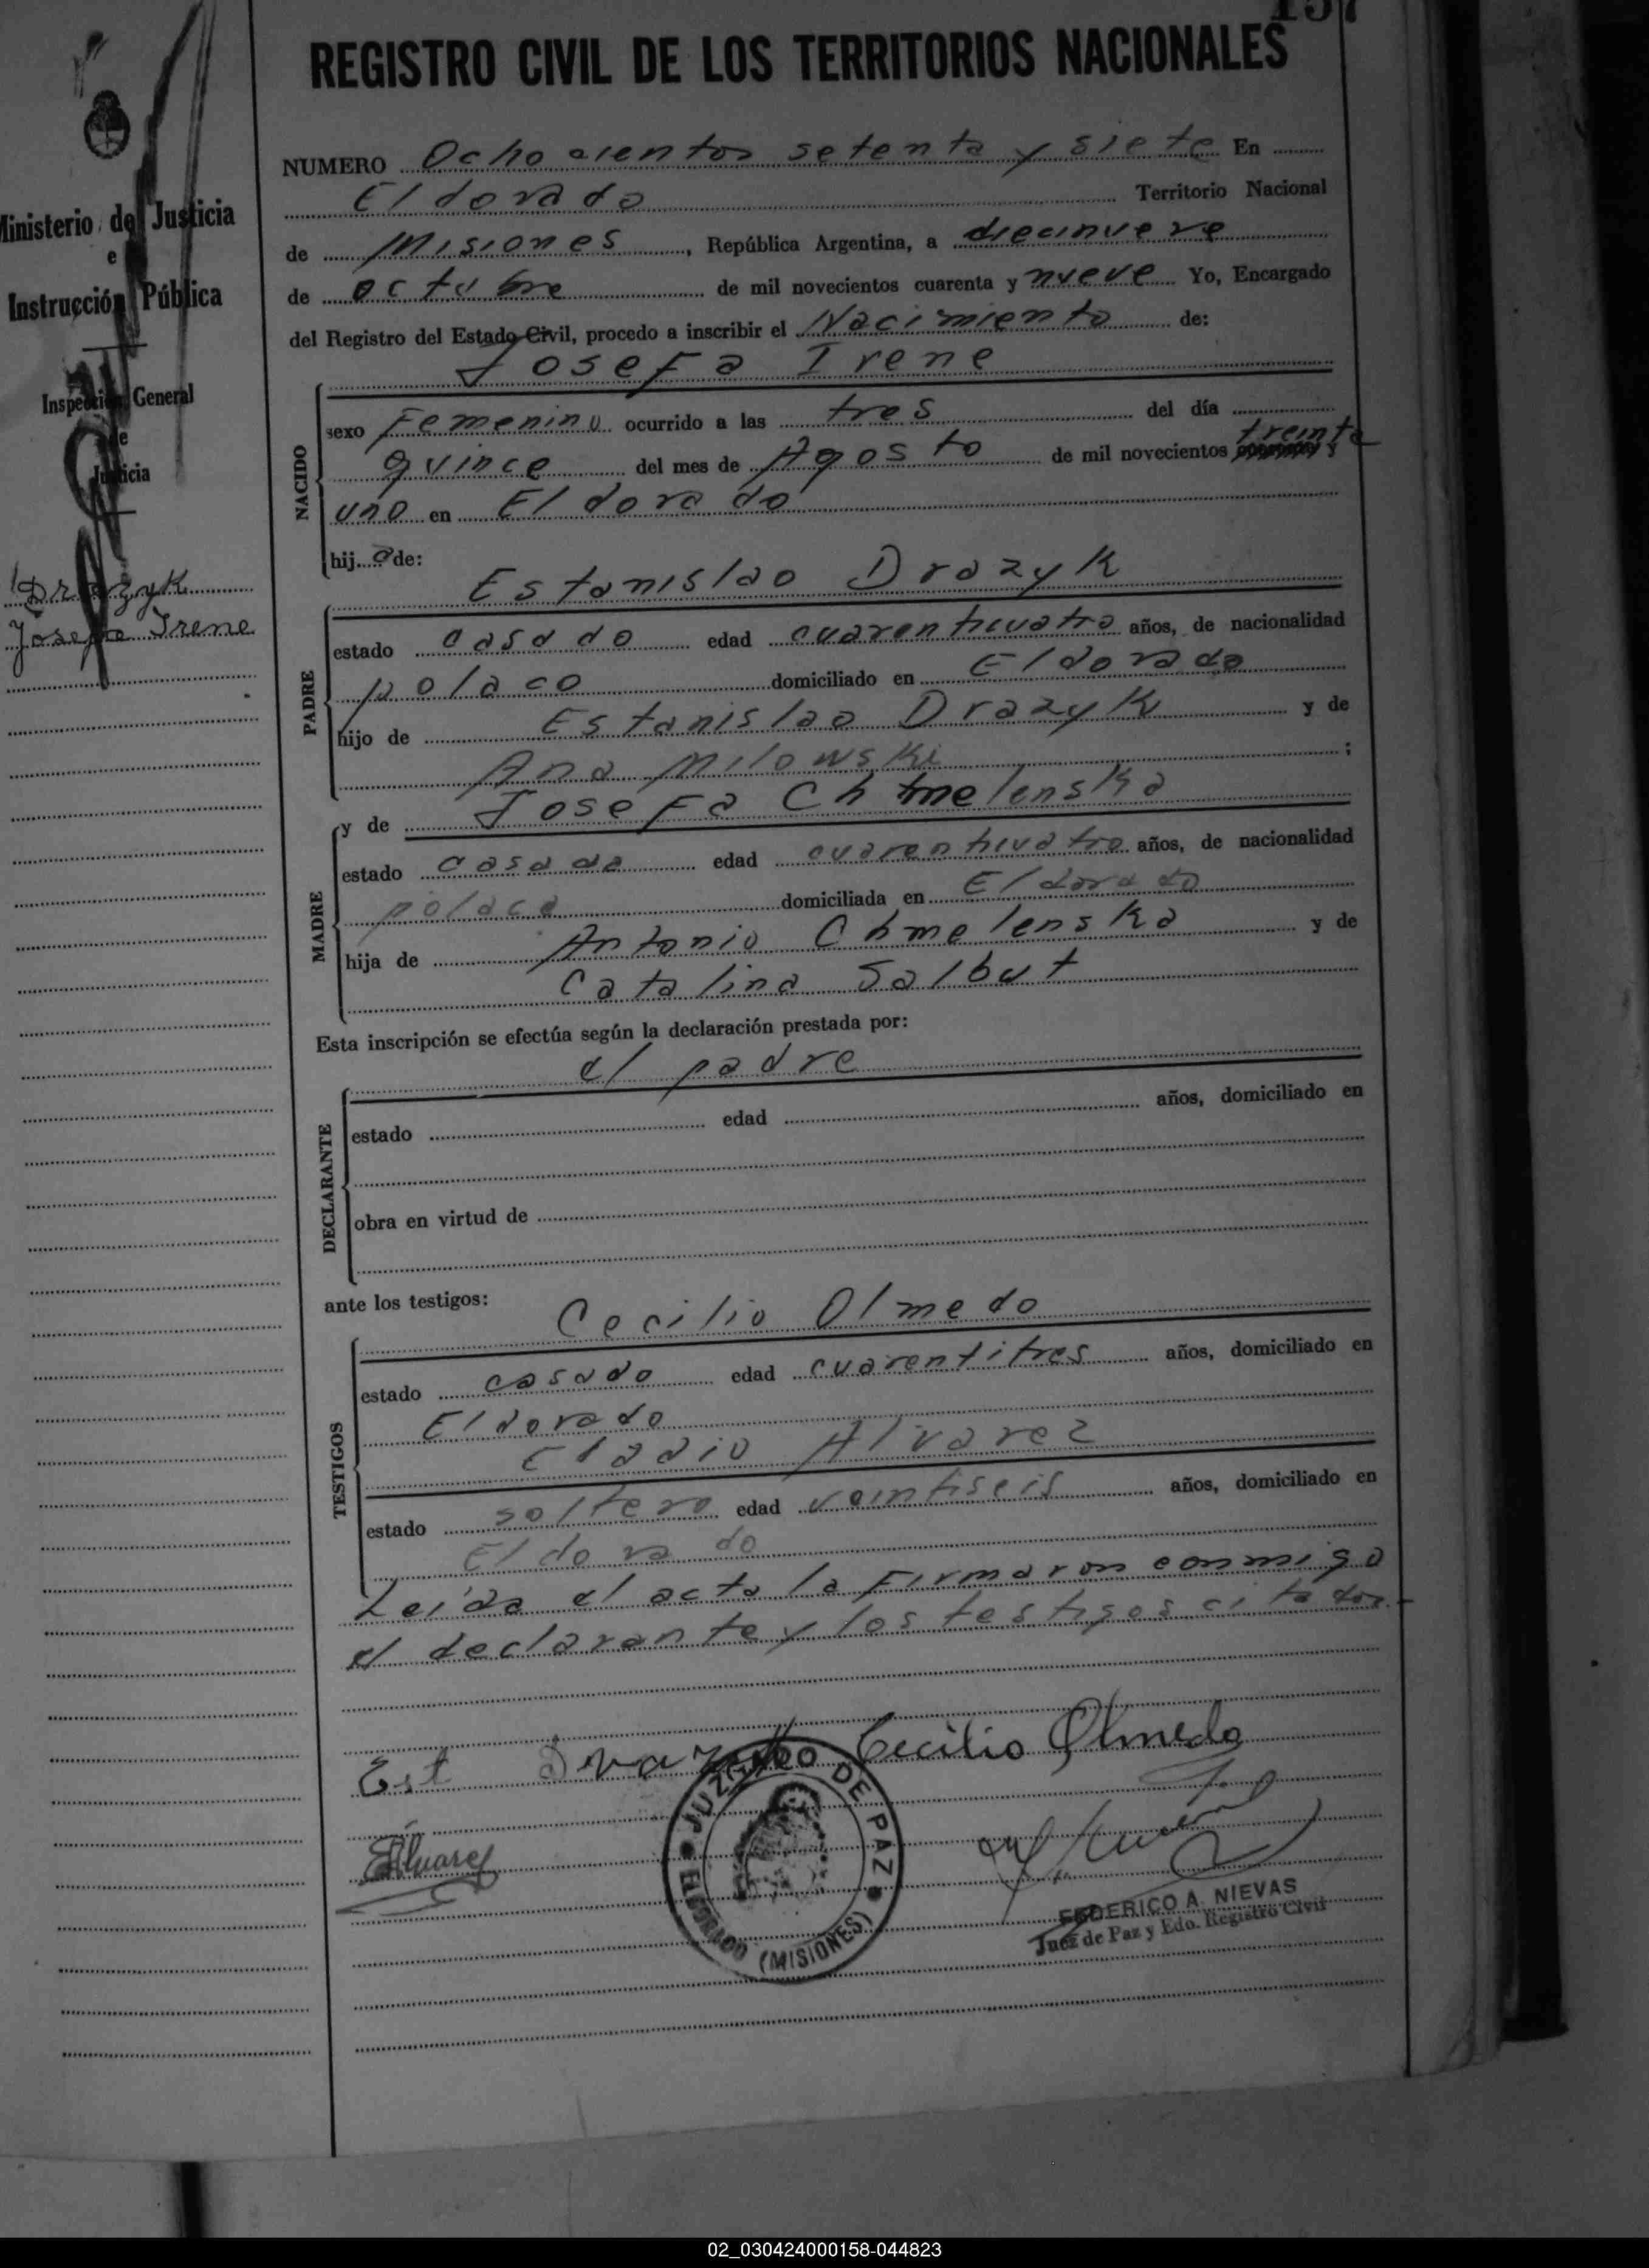 157
REGISTRO CIVIL DE LOS TERRITORIOS NACIONALES
Ministerio de Justicia
e
Instrucción Pública
Inspección General
de
Justicia
Drazyk
Josefa Irene
NUMERO Ochocientos setenta y siete En
Eldorado Territorio Nacional
de Misiones, República Argentina, a diecinueve
de octubre de mil novecientos cuarenta y nueve Yo, Encargado
del Registro del Estado Civil, procedo a inscribir el Nacimiento de:
Josefa Irene
NACIDO
sexo Femenino ocurrido a las tres del día
quince del mes de Agosto de mil novecientos treinta y
uno en Eldorado
hija de:
Estanislao Drazyk
PADRE
estado casado edad cuarenticuatro años, de nacionalidad
polaco domiciliado en Eldorado
hijo de Estanislao Drazyk y de
Ana Milowski;
y de Josefa Chmelenska
MADRE
estado casada edad cuarenticuatro años, de nacionalidad
polaca domiciliada en Eldorado
hija de Antonio Chmelenska y de
Catalina Salbut
Esta inscripción se efectúa según la declaración prestada por:
el padre
DECLARANTE
estado edad años, domiciliado en
obra en virtud de
ante los testigos:
Cecilio Olmedo
TESTIGOS
estado casado edad cuarentitres años, domiciliado en
Eldorado
Eladio Alvarez
estado soltero edad veintiseis años, domiciliado en
Eldorado
Leída el acta la Firmaron conmigo
el declarante y los testigos citados.-
Est Drazyk Cecilio Olmedo
EAlvarez
JUZGADO DE PAZ
ELDORADO (MISIONES)
FEDERICO A. NIEVAS
Juez de Paz y Edo. Registro Civil
02_030424000158-044823